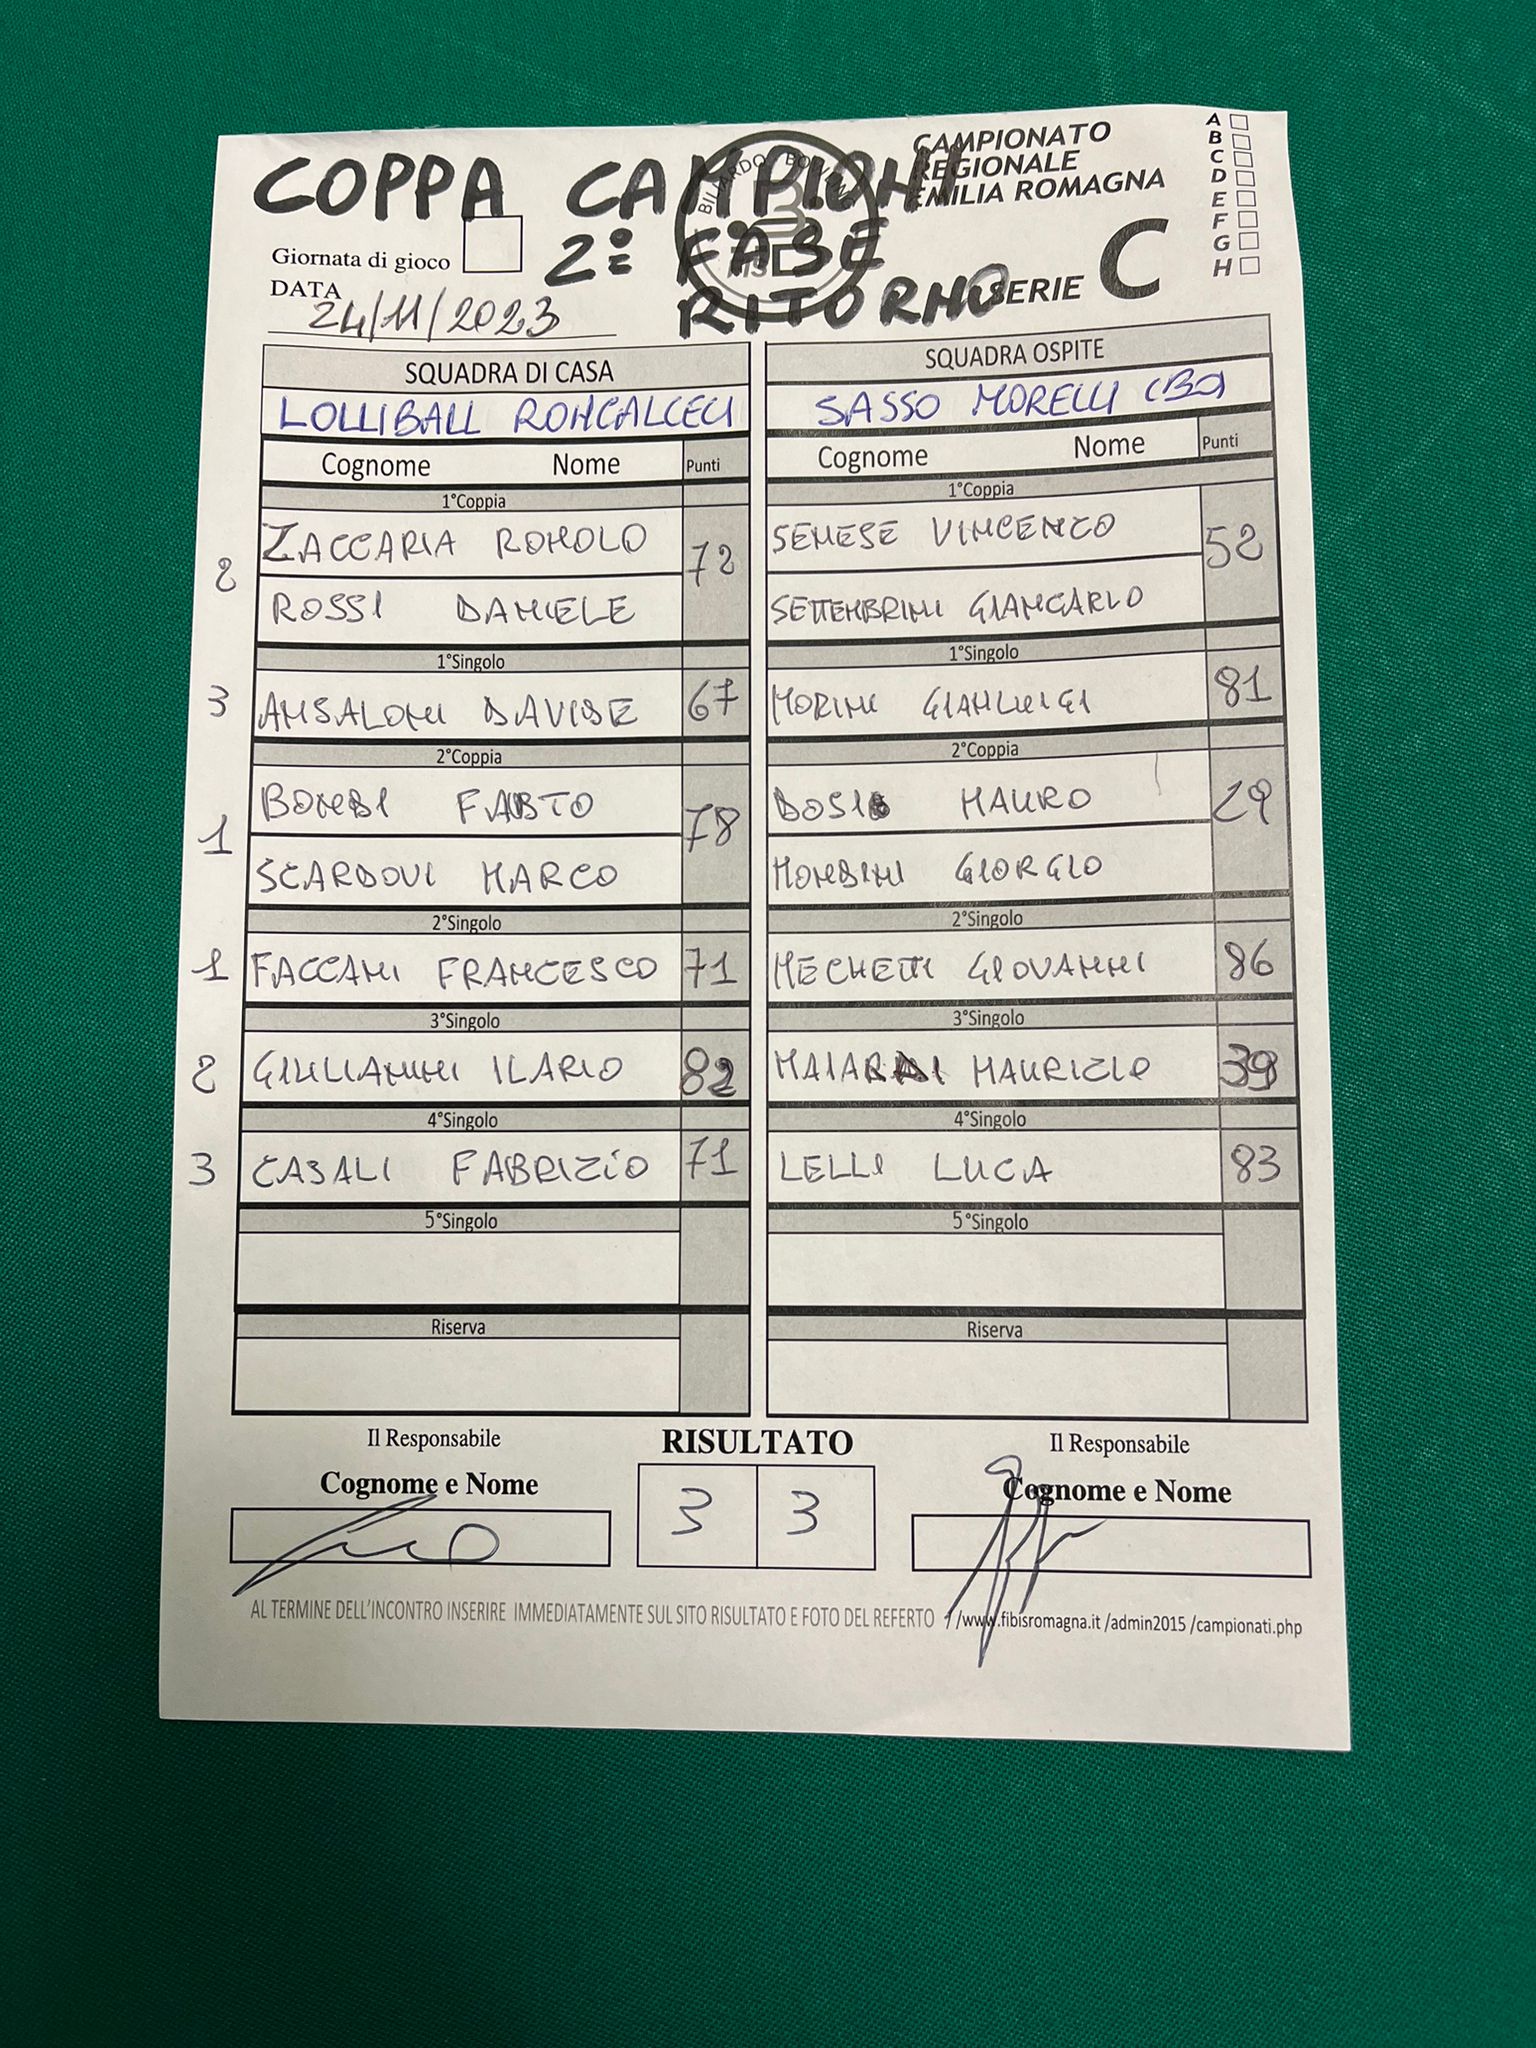 COPPA CAMPIONI
2ª FASE
RITORNO
CAMPIONATO
REGIONALE
EMILIA ROMAGNA
SERIE C
A
B
C
D
E
F
G
H
Giornata di gioco
DATA
24/11/2023
SQUADRA DI CASA
LOLLIBALL RONCALCECI
Cognome Nome Punti
1°Coppia
2
ZACCARIA ROMOLO 72
ROSSI DANIELE
1°Singolo
3 ANSALONI DAVIDE 67
2°Coppia
1
BOMBI FAUSTO 78
SCARDOVI MARCO
2°Singolo
1 FACCANI FRANCESCO 71
3°Singolo
2 GIULIANINI ILARIO 82
4°Singolo
3 CASALI FABRIZIO 71
5°Singolo
Riserva
SQUADRA OSPITE
SASSO MORELLI (BO)
Cognome Nome Punti
1°Coppia
SENESE VINCENZO 52
SETTEMBRINI GIANCARLO
1°Singolo
MORINI GIANLUIGI 81
2°Coppia
DOSI MAURO 29
MONDINI GIORGIO
2°Singolo
MECHETTI GIOVANNI 86
3°Singolo
MAURIZIO 39
4°Singolo
LELLI LUCA 83
5°Singolo
Riserva
Il Responsabile
Cognome e Nome
RISULTATO
3 3
Il Responsabile
Cognome e Nome
AL TERMINE DELL'INCONTRO INSERIRE IMMEDIATAMENTE SUL SITO RISULTATO E FOTO DEL REFERTO //www.fibisromagna.it /admin2015 /campionati.php